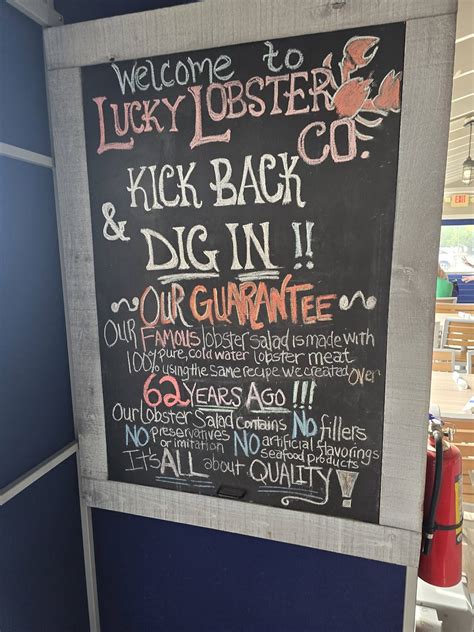 Welcome to
LUCKY LOBSTER
CO.
KICK BACK
&
DIG IN !!
~ OUR GUARANTEE ~
OUR FAMOUS lobster salad is made with
100% pure, cold water lobster meat
using the same recipe we created OVER
62 YEARS AGO !!!
Our Lobster Salad contains NO fillers
NO preservatives or imitation NO artificial flavorings seafood products
IT'S ALL about QUALITY!
EXIT